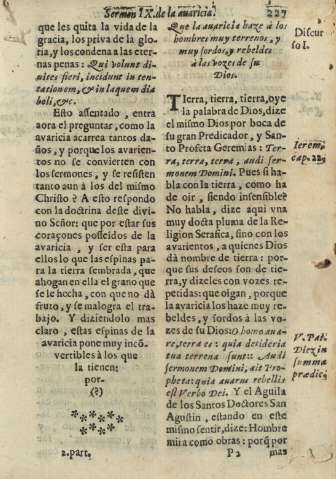 Sermon IX. de la auaricia.
227
que les quita la vida de la
gracia, los priva de la glo-
ria, y los condena a las eter-
nas penas: Qui volunt di-
uites fieri, incidunt in ten-
tationem, & in laqueum dia
boli, &c.
Esto assentado, entra
aora el preguntar, como la
avaricia acarrea tantos da-
ños, y porque los avarien-
tos no se convierten con
los sermones, y se resisten
tanto aun à los del mismo
Christo? A esto respondo
con la doctrina deste divi-
no Señor: que por estar sus
coraçones posseidos de la
avaricia, y ser esta para
ellos lo que las espinas pa-
ra la tierra sembrada, que
ahogan en ella el grano que
se le hecha, con que no dà
fruto, y se malogra el tra-
bajo. Y diziendolo mas
claro, estas espinas de la
avaricia pone muy incô-
vertibles à los que
la tienen:
por-
(?)
2. part.
Que la auaricia haze à los
hombres muy terrenos, y
muy sordos, y rebeldes
à las vozes de su
Dios.
Discur
so I.
TIerra, tierra, tierra, oye
la palabra de Dios, dize
el mismo Dios por boca de
su gran Predicador, y San-
to Profeta Geremias: Ter-
ra, terra, terra, audi ser-
monem Domini. Pues si ha-
bla con la tierra, como ha
de oir, siendo insensible?
No habla, dize aqui vna
muy docta pluma de la Re-
ligion Serafica, sino con los
avarientos, a quienes Dios
dà nombre de tierra: por-
que sus deseos son de tier-
ra, y dizeles con vozes re-
petidas: que oigan, porque
la avaricia los haze muy re-
beldes, y sordos à las vo-
zes de su Dios: O homo aua-
re, terra es: quia desideria
tua terrena sunt: Audi
sermonem Domini, ait Pro-
pheta: quia auarus rebellis
est Verbo Dei. Y el Aguila
de los Santos Doctores San
Agustin, estando en este
mismo sentir, dize: Hombre
mira como obras: porq̃ por
Ierem.
cap. 22.
V. Pat.
Diez in
summa
prædic.
P 2
mas